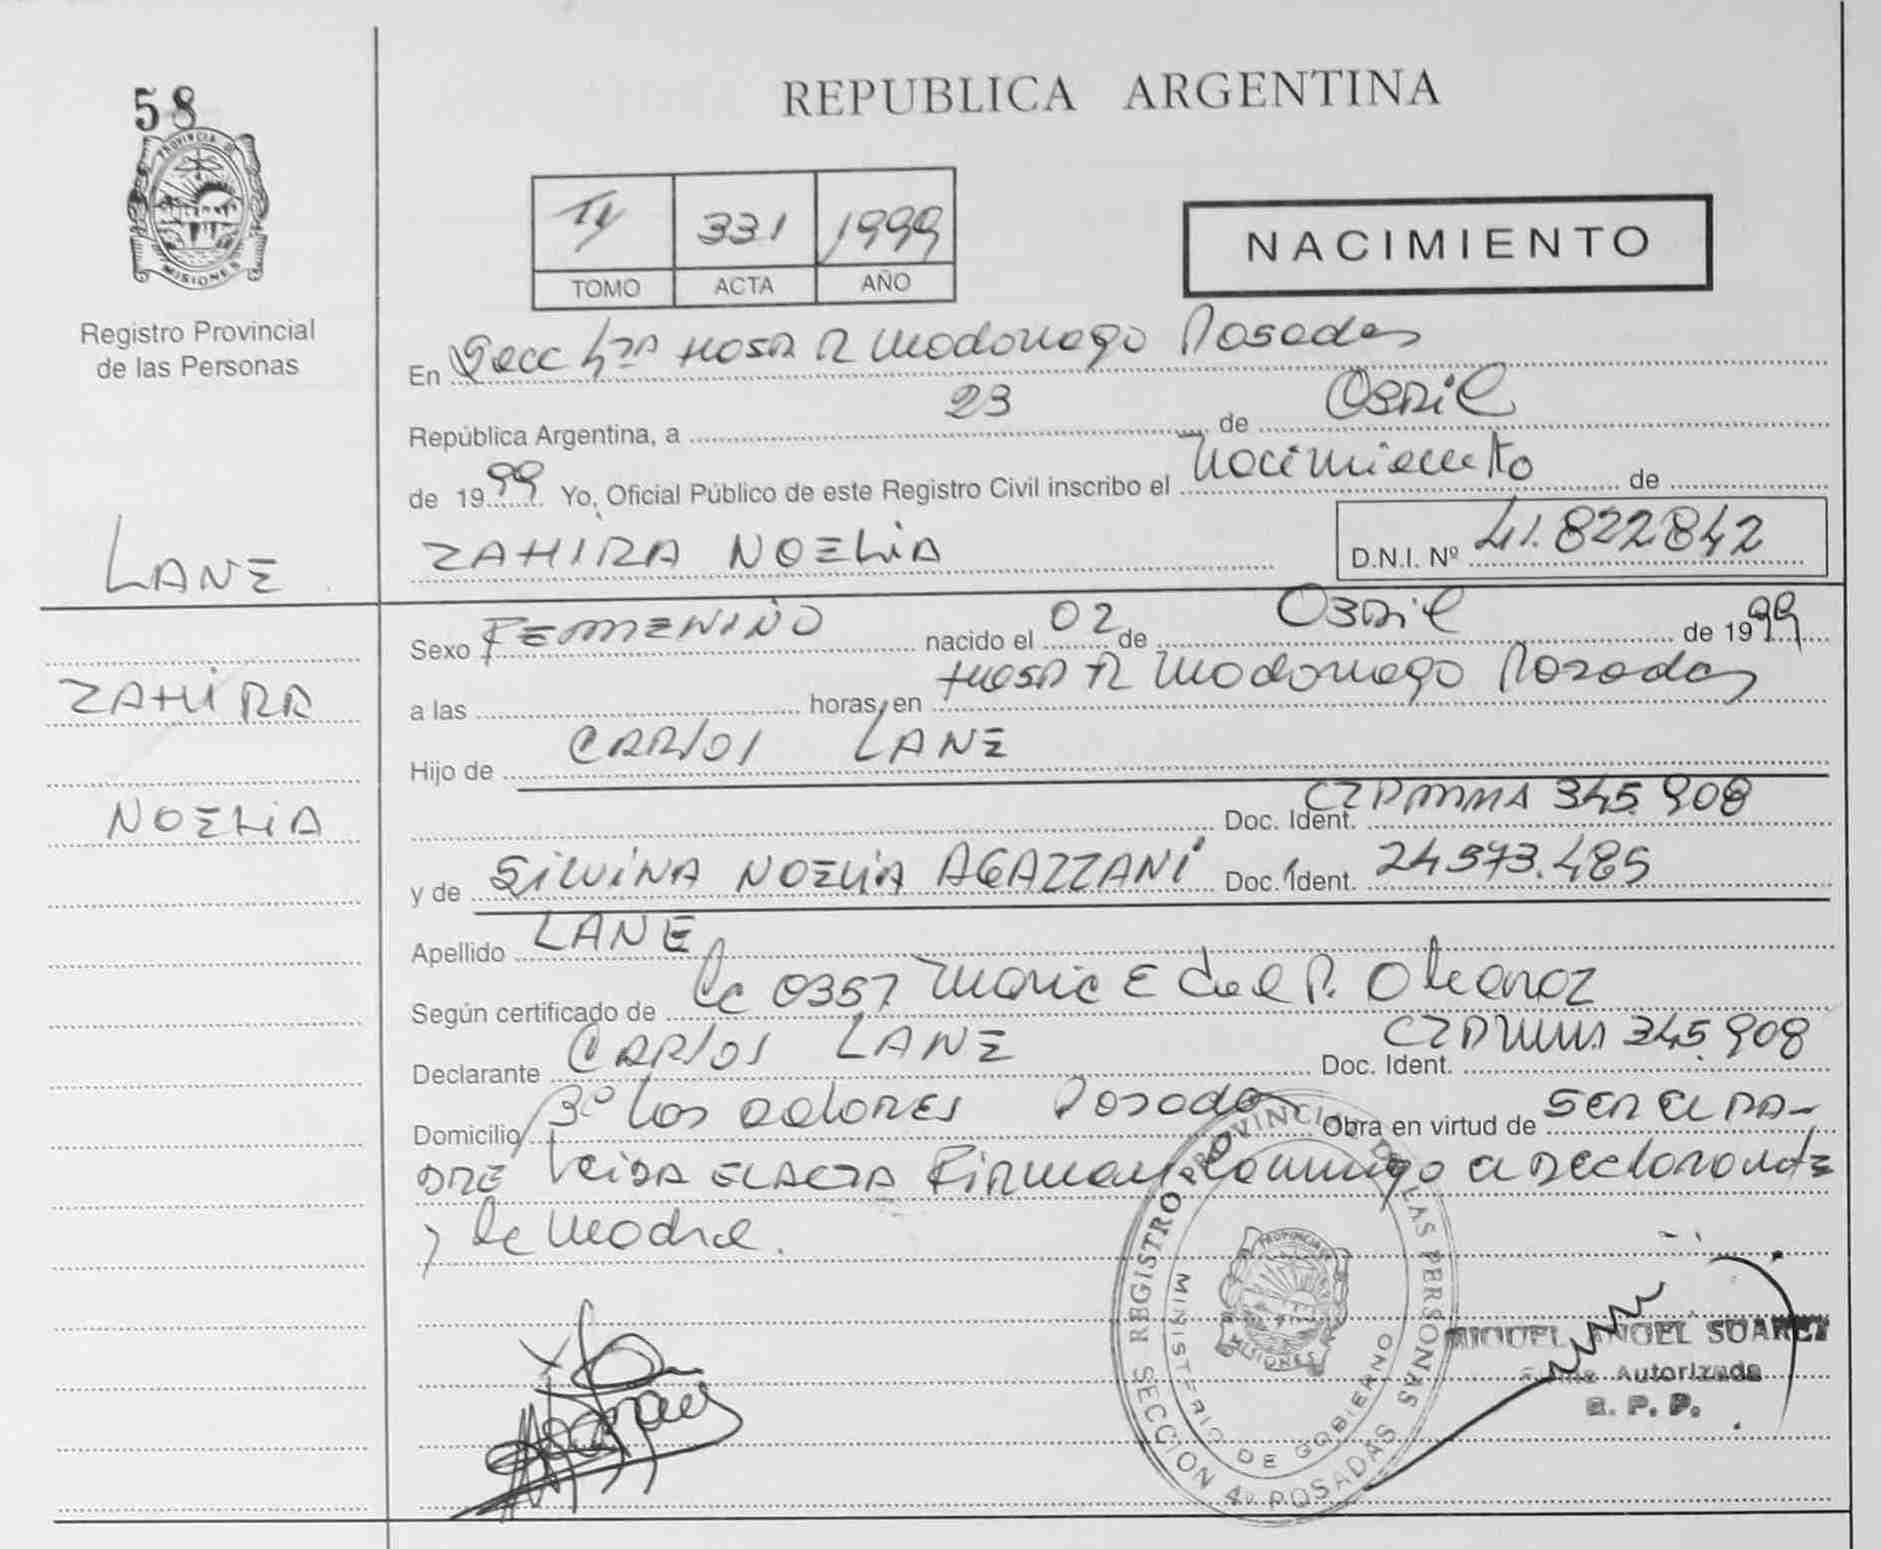 58
PROVINCIA DE
MISIONES
Registro Provincial
de las Personas
REPUBLICA ARGENTINA
331 1999
TOMO ACTA AÑO
NACIMIENTO
En Secc 4ta HOSP R Madariaga Posadas
República Argentina, a 23 de Abril
de 1999 Yo, Oficial Público de este Registro Civil inscribo el Nacimiento de
LANE
ZAHIRA NOELIA
D.N.I. Nº 41.822842
Sexo FEMENINO nacido el 02 de Abril de 1999
ZAHIRA
a las horas, en HOSP R Madariaga Posadas
Hijo de CARLOS LANE
NOELIA
Doc. Ident. 345.908
y de SILVINA NOELIA AGAZZANI Doc. Ident. 24573.485
Apellido LANE
Según certificado de 0357
Declarante CARLOS LANE Doc. Ident. 345.908
Domicilio Posadas Obra en virtud de SER EL PA-
DRE Leida EL ACTA Firman conmigo el Declarante
y la Madre.
REGISTRO PROVINCIAL DE LAS PERSONAS
MINISTERIO DE GOBIERNO
PROVINCIA DE
MISIONES
SECCION 4º POSADAS
MIGUEL ANGEL SUAREZ
Firma Autorizada
R. P. P.